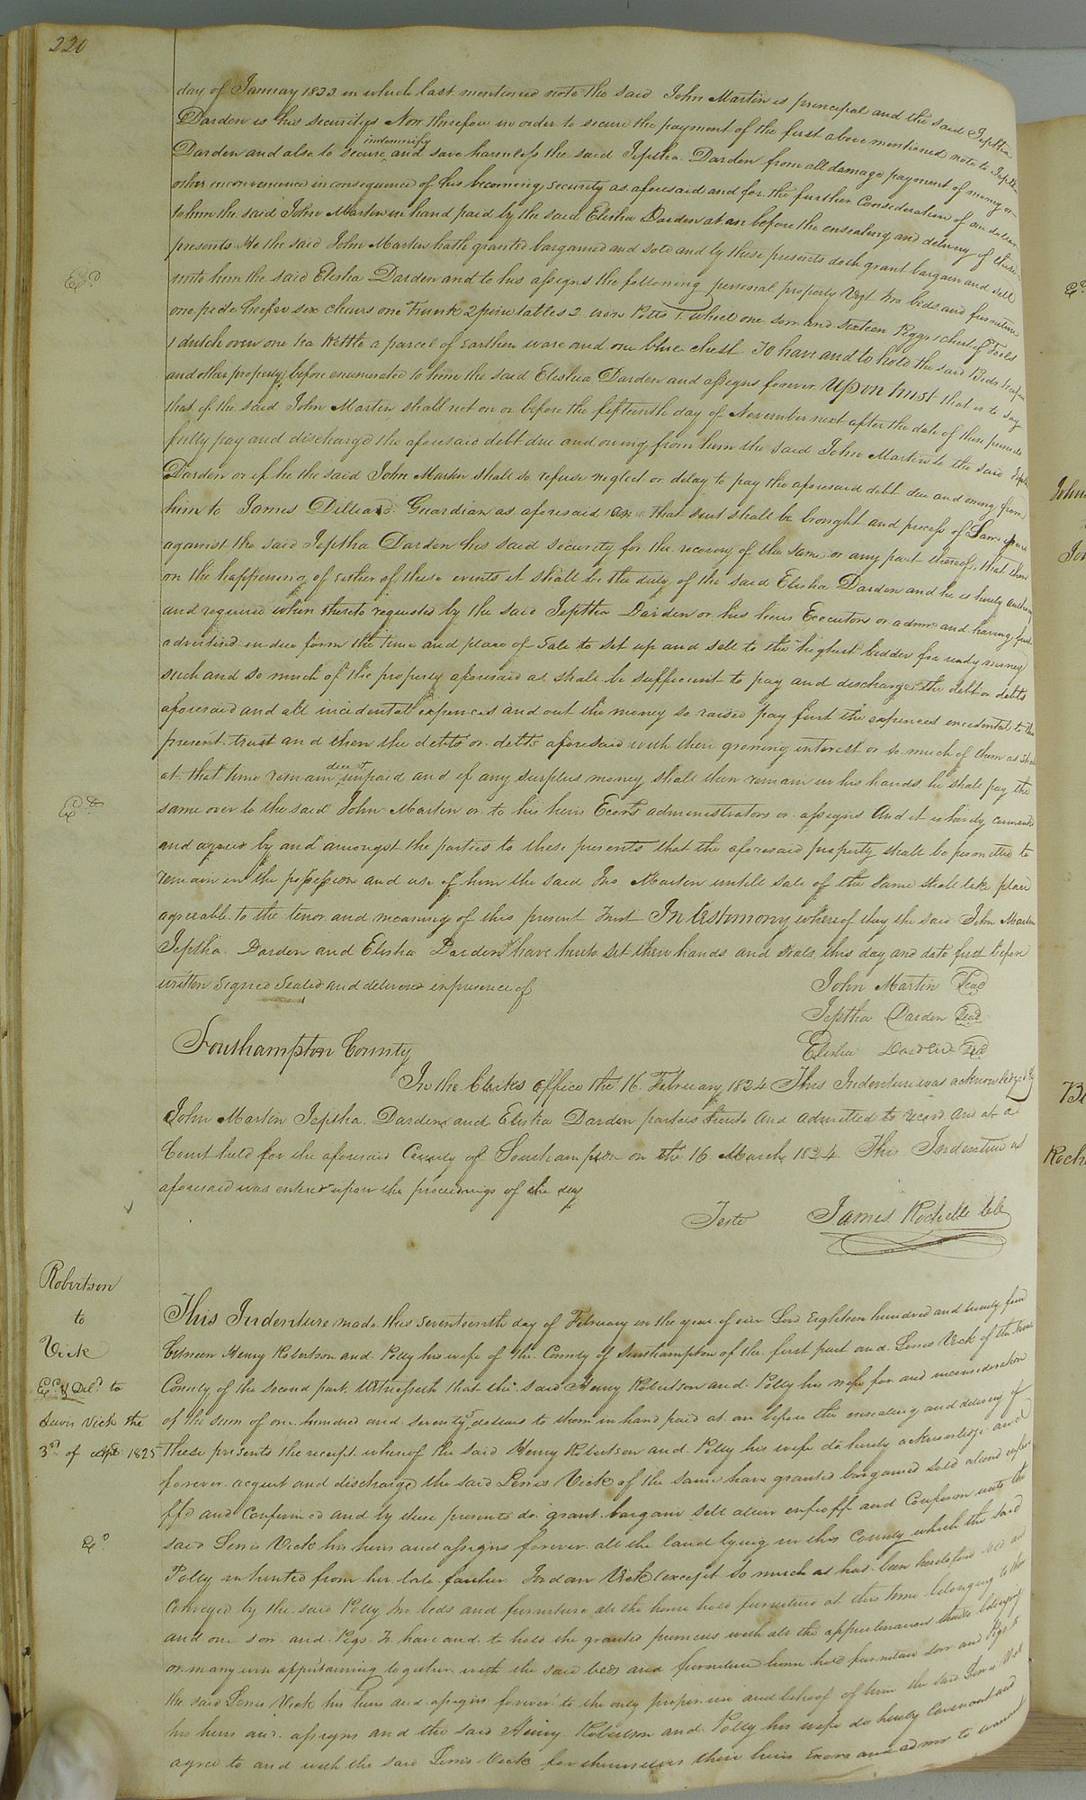 220
day of January 1823 in which last mentioned note the said John Martin is principal and the said Jeptha
Darden is his security Now therefore in order to secure the payment of the first above mentioned note to Jeptha
Darden and also to secure indemnify and save harmless the said Jeptha Darden from all damage payment of money or
other inconvenience in consequence of his becoming security as aforesaid and for the further Consideration of one dollar
to him the said John Martin in hand paid by the said Elisha Darden at or before the ensealing and delivery of these
presents He the said John Martin hath granted bargained and sold and by these presents doth grant bargain and sell
unto him the said Elisha Darden and to his assigns the following personal property Viz two beds and furniture
one pide heifer six chairs one Trunk 2 pine tables 2 iron Potts 1 wheel one sow and sixteen Piggs 1 chest of Tools
1 dutch oven one tea kettle a parcel of earthen ware and one blue chest To have and to hold the said Beds
and other property before enumerated to him the said Elisha Darden and assigns forever Upon trust that is to say
that if the said John Martin shall not on or before the fifteenth day of November next after the date of these presents
fully pay and discharge the aforesaid debt due and owing from him the said John Martin to the said Jeptha
Darden or if he the said John Martin shall so refuse neglect or delay to pay the aforesaid debt due and owing from
him to James Dilliard Guardian as aforesaid that suit shall be brought and process of Law
against the said Jeptha Darden his said security for the recovery of the same or any part thereof, that then
on the happening of either of these events it shall be the duty of the said Elisha Darden and he is hereby
and required when thereto requested by the said Jeptha Darden or his heirs Executors or admrs and having first
advertised in due form the time and place of sale to set up and sell to the highest bidder for ready money
such and so much of the property aforesaid as shall be sufficient to pay and discharge the debt or debts
aforesaid and all incidental expences and out the money so raised pay first the expences incidental to this
present trust and then the debts or debts aforesaid with their growing interest or so much of them as shall
at that time remain due & unpaid and if any surplus money shall then remain in his hands he shall pay the
same over to the said John Martin or to his heirs Ecors administrators or assigns And it is hereby
and agreed by and amongst the parties to these presents that the aforesaid property shall be permitted to
remain in the possession and use of him the said Jno Martin untill sale of the same shall take place
agreeable to the tenor and meaning of this present Trust In testimony whereof they the said John Martin
Jeptha Darden and Elisha Darden have hereto set their hands and seals this day and date first before
written Signed Sealed and delivered in presence of
John Martin Seal
Jeptha Darden Seal
Elisha Darden Seal
Southampton County
In the Clerks office the 16 February 1824 This Indenture was acknowledged by
John Martin Jeptha Darden and Elisha Darden parties hereto and admitted to record and at a
Court held for the aforesaid County of Southampton on the 16 March 1824 This Indenture as
aforesaid was entered upon the proceedings of the day
Teste James Rochelle Clk
Robertson
to
Vick
Exd & Deld to
Lewis Vick the
3rd of 1825
This Indenture made this seventeenth day of February in the year of our Lord eighteen hundred and twenty four
Between Henry Robertson and Polly his wife of the County of Southampton of the first part and Lewis Vick of the
County of the second part. Witnesseth that the said Henry Robertson and Polly his wife for and in consideration
of the sum of one hundred and seventy dollars to them in hand paid at or before the ensealing and delivery of
these presents the receipt whereof the said Henry Robertson and Polly his wife do hereby acknowledge and
forever acquit and discharge the said Lewis Vick of the same have granted bargained sold aliend
ffd and Confirmed and by these presents do grant bargain sell alien enfeoff and Confirm unto the
said Lewis Vick his heirs and assigns forever all the land lying in this County which the said
Polly inherited from her late father Jordan Vick except so much as has been heretofore
Conveyed by the said Polly two beds and furniture all the house hold furniture at this time belonging to
and one sow and Pigs To have and to hold the granted premises with all the appurtenances
or in any wise appertaining together with the said beds and furniture house hold furniture sow and Pigs to
the said Lewis Vick his heirs and assigns forever to the only proper use and behoof of him the said Lewis Vick
his heirs and assigns and the said Henry Robertson and Polly his wife do hereby Covenant and
agree to and with the said Lewis Vick for themselves their heirs Exors and admrs to warrant